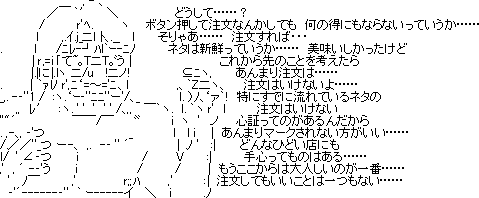 どうして……？
ボタン押して注文なんかしても　何の得にもならないっていうか……
そりゃあ……　注文すれば…
ネタは新鮮っていうか……　美味いしかったけど
これから先のことを考えたら
あんまり注文は……
注文はいけないよ……
特にすでに流れているネタの
注文はいけない
心証ってのがあるんだから
あんまりマークされない方がいい……
どんなひどい店にも
手心ってものはある……
もうここからは大人しいのが一番……
注文してもいいことは一つもない……